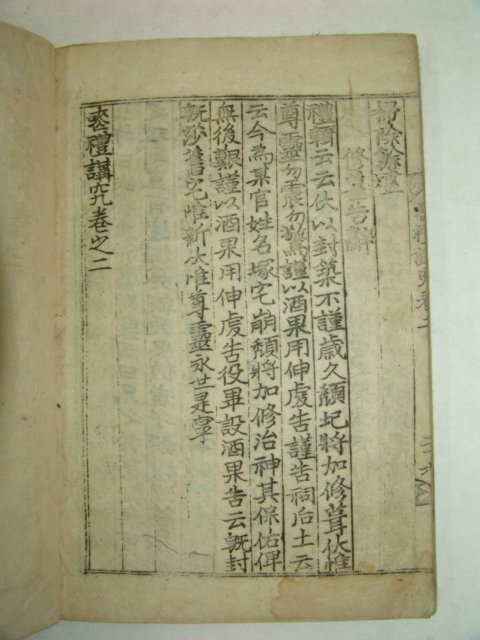 掃除
禮輯云云伏以封築不謹歲久頹圮將加修葺伏惟
尊靈勿震勿驚謹以酒果用伸虔告謹告祠后土云
云今為某官姓名塚宅崩頹將加修治神其保佑俾
無後艱謹以酒果用伸虔告役畢設酒果告云旣封
旣莎舊宅惟新伏惟尊靈永世是寧
喪禮講究卷之二